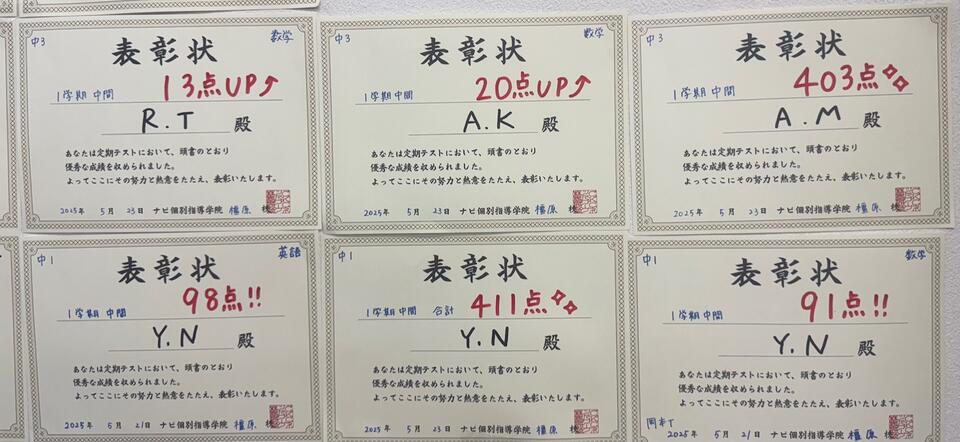 中3
数学
表彰状
1学期 中間 13点UP↑
R.T 殿
あなたは定期テストにおいて、頭書のとおり
優秀な成績を収められました。
よってここにその努力と熱意をたたえ、表彰いたします。
2025年 5月 23日 ナビ個別指導学院 橿原 校
中3
数学
表彰状
1学期 中間 20点UP↑
A.K 殿
あなたは定期テストにおいて、頭書のとおり
優秀な成績を収められました。
よってここにその努力と熱意をたたえ、表彰いたします。
2025年 5月 23日 ナビ個別指導学院 橿原 校
中3
表彰状
1学期 中間 403点
A.M 殿
あなたは定期テストにおいて、頭書のとおり
優秀な成績を収められました。
よってここにその努力と熱意をたたえ、表彰いたします。
2025年 5月 23日 ナビ個別指導学院 橿原 校
中1
英語
表彰状
1学期 中間 98点!!
Y.N 殿
あなたは定期テストにおいて、頭書のとおり
優秀な成績を収められました。
よってここにその努力と熱意をたたえ、表彰いたします。
2025年 5月 21日 ナビ個別指導学院 橿原 校
中1
表彰状
1学期 中間 合計 411点
Y.N 殿
あなたは定期テストにおいて、頭書のとおり
優秀な成績を収められました。
よってここにその努力と熱意をたたえ、表彰いたします。
2025年 5月 23日 ナビ個別指導学院 橿原 校
中1
数学
表彰状
1学期 中間 91点!!
Y.N 殿
あなたは定期テストにおいて、頭書のとおり
優秀な成績を収められました。
よってここにその努力と熱意をたたえ、表彰いたします。
2025年 5月 21日 ナビ個別指導学院 橿原 校